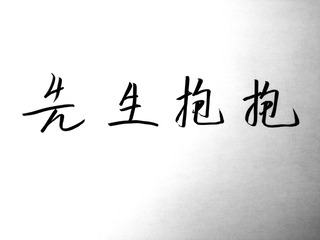 先生抱抱